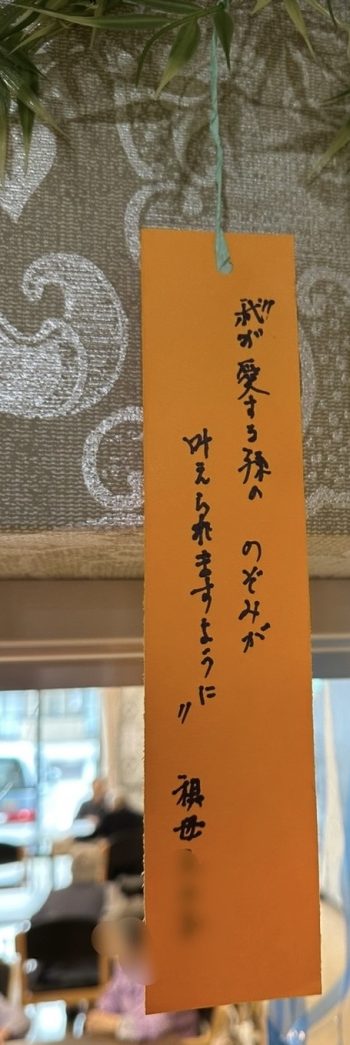 〃我が愛する孫の のぞみが
叶えられますように〃
祖母